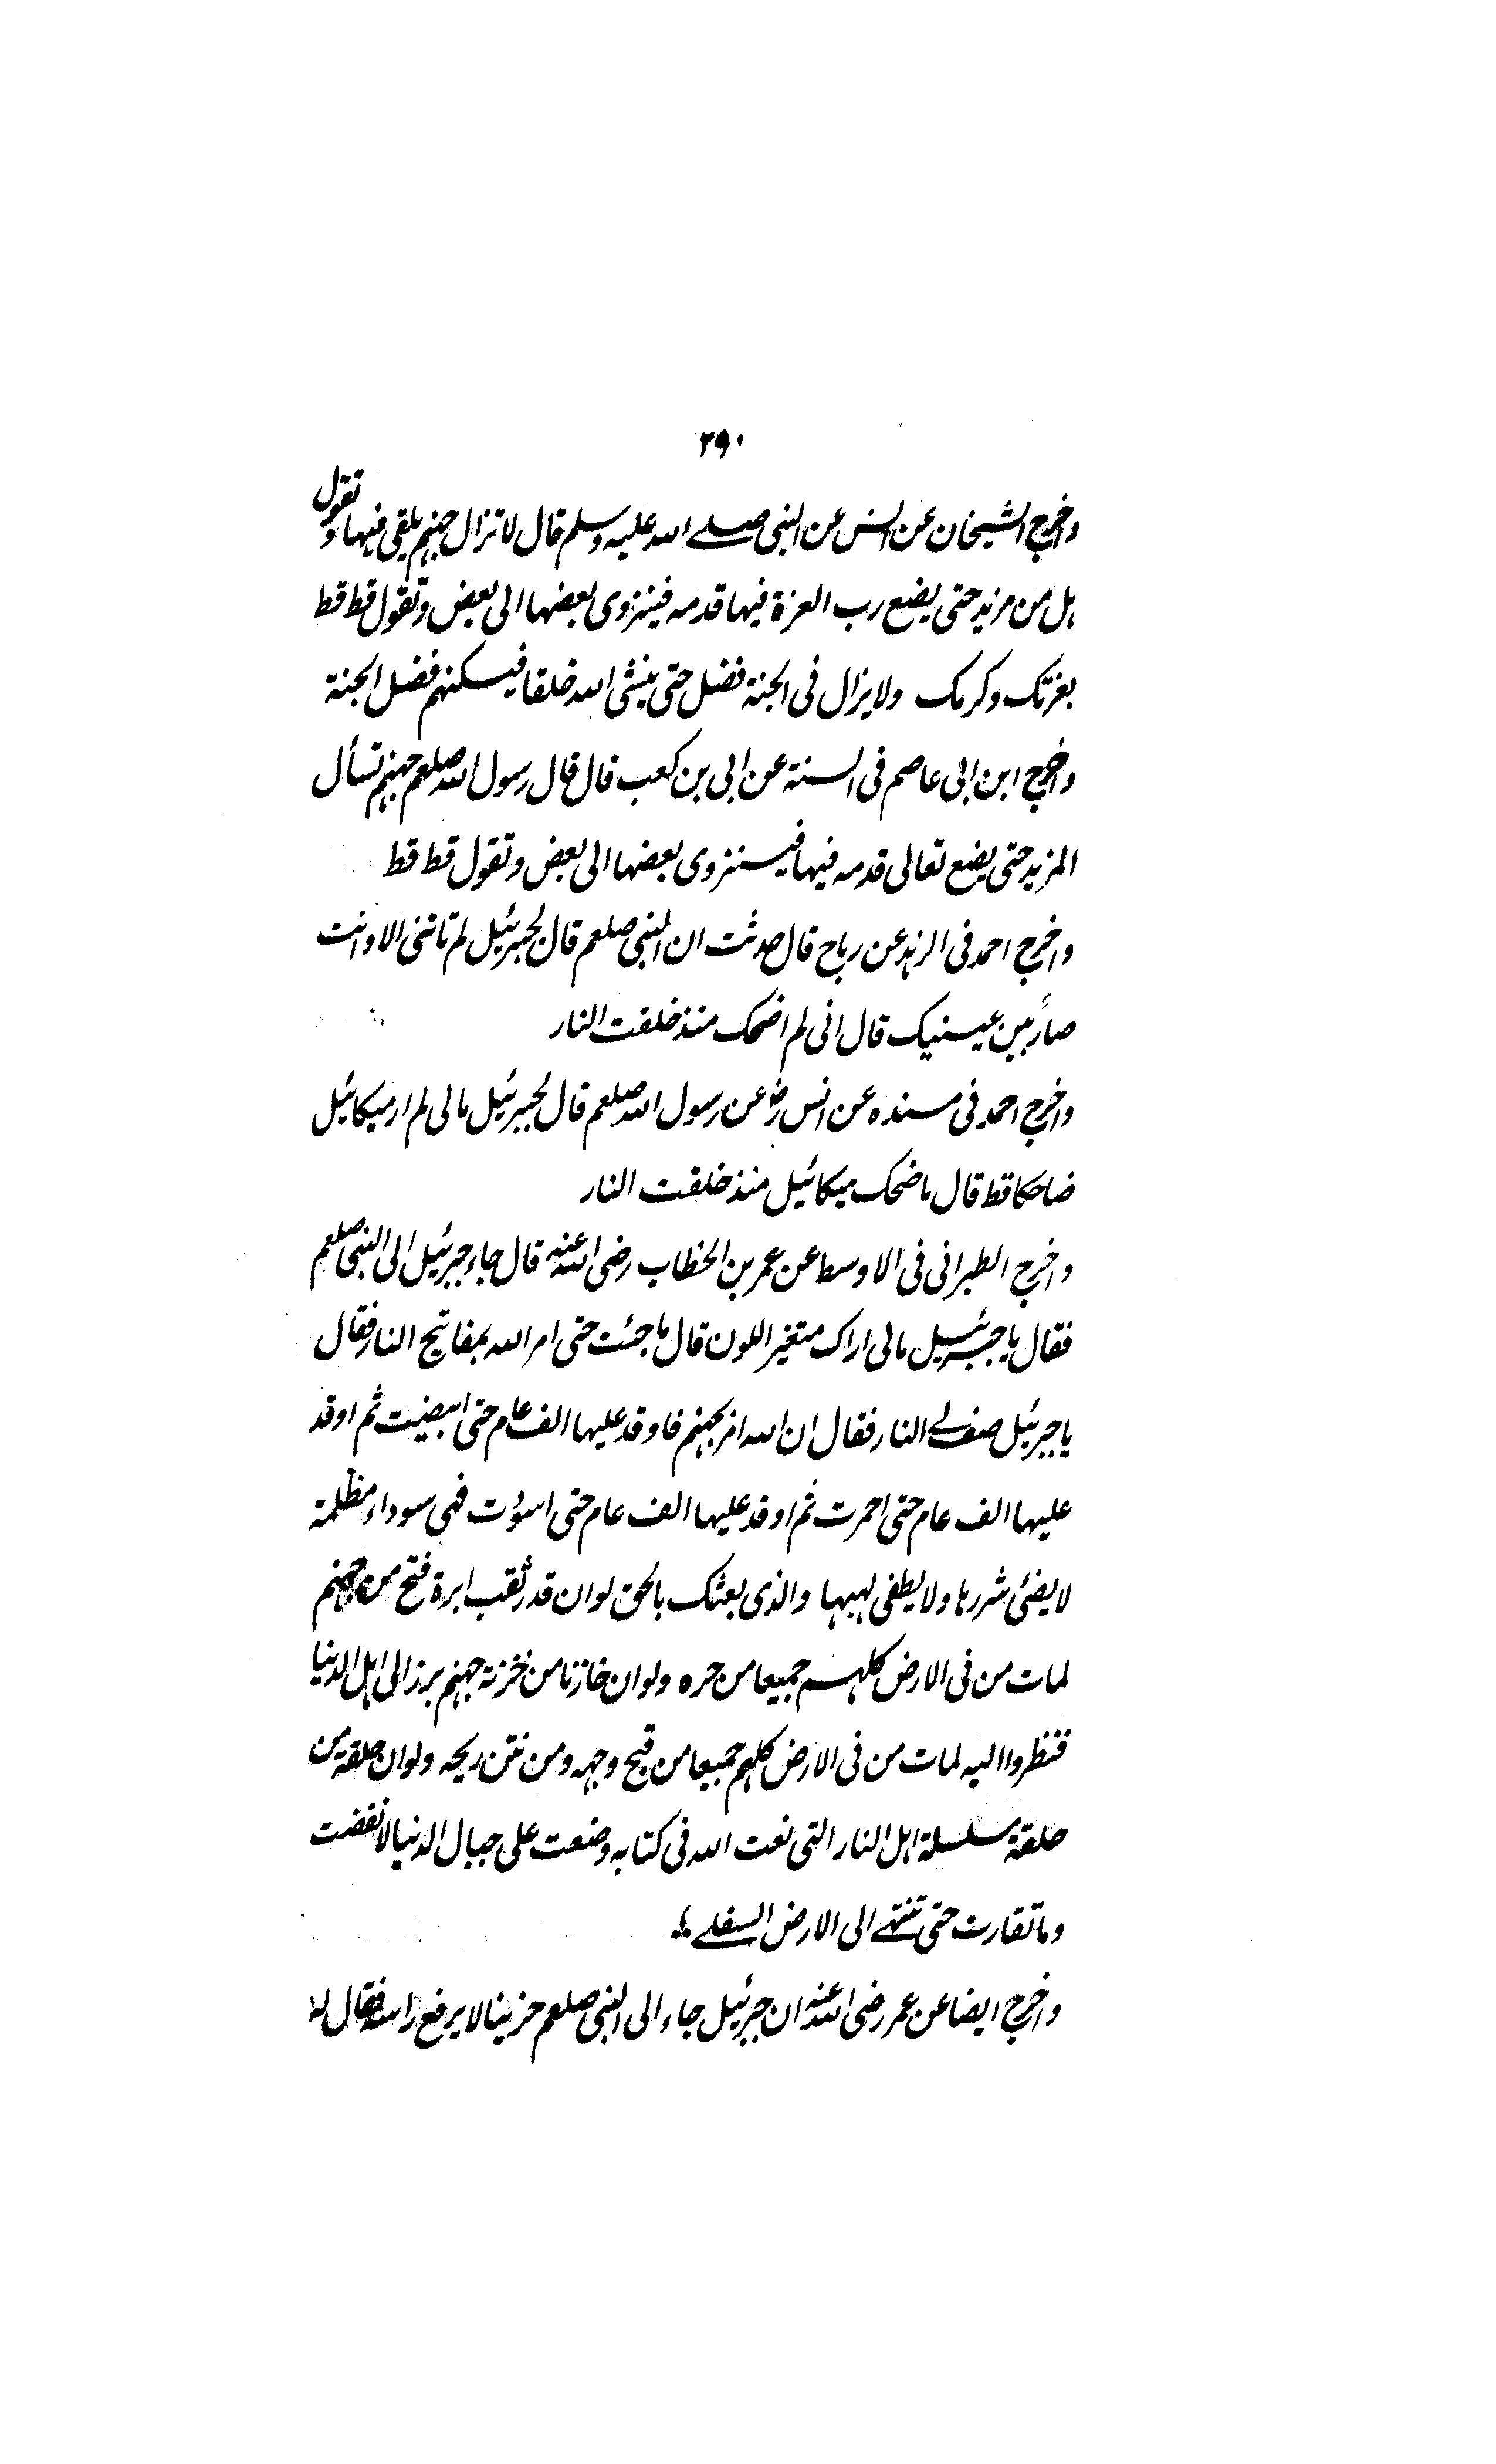 ۲۹۰
واخرج الشيخان عن انس عن النبى صلے الله عليه وسلم قال لا تزال جهنم يلقى فيها وتقول
هل من مزيد حتى يضع رب العزة فيها قدمه فينزوى بعضها الى بعض وتقول قط قط
بعزتك وكرمك ولا يزال فى الجنة فضل حتى ينشئ الله خلقا فيسكنهم فضل الجنة
واخرج ابن ابى عاصم فى السنة عن ابى بن كعب قال قال رسول الله صلعم جهنم تسأل
المزيد حتى يضع تعالى قدمه فيها فيسنزوى بعضها الى بعض وتقول قط قط
واخرج احمد فى الزهد عن رباح قال حدثت ان النبى صلعم قال لجبرئيل لم تاتنى الا وانت
صار بين عينيك قال انى لم اضحك منذ خلقت النار
واخرج احمد فى مسنده عن انس رض عن رسول الله صلعم قال لجبرئيل مالى لم ار ميكائيل
ضاحكا قط قال ما ضحك ميكائيل منذ خلقت النار
واخرج الطبرانى فى الاوسط عن عمر بن الخطاب رضى الله عنه قال جاء جبرئيل الى النبى صلعم
فقال يا جبرئيل مالى اراك متغير اللون قال ما جئت حتى امر الله بمفاتيح النار فقال
يا جبرئيل صف لے النار فقال ان الله امر بجهنم فاوقد عليها الف عام حتى ابيضت ثم اوقد
عليها الف عام حتى احمرت ثم اوقد عليها الف عام حتى اسودت فهى سوداء مظلمة
لا يضئ شررها ولا يطفى لهبها والذى بعثك بالحق لو ان قدر ثقب ابرة فتح من جهنم
لمات من فى الارض كلهم جميعا من حره ولو ان خازنا من خزنة جهنم برز الى اهل الدنيا
فنظروا اليه لمات من فى الارض كلهم جميعا من قبح وجهه ومن نتن ريحه ولو ان حلقة من
حلقة سلسلة اهل النار التى نعت الله فى كتابه وضعت على جبال الدنيا لانفضت
وما تقارت حتى تنتهے الى الارض السفلے
واخرج ايضا عن عمر رضى الله عنه ان جبرئيل جاء الى النبى صلعم حزينا لا يرفع راسه فقال له